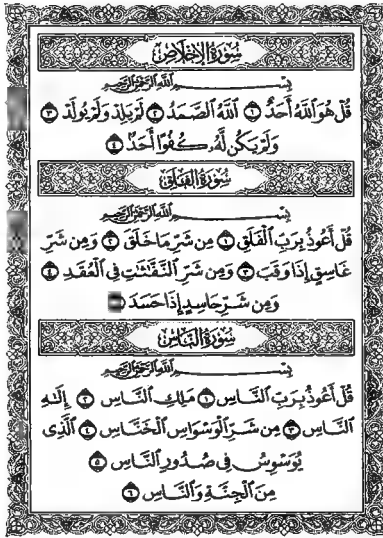 سُورَةُ الإِخْلَاصِ
بِسْمِ ٱللَّهِ ٱلرَّحْمَٰنِ ٱلرَّحِيمِ
قُلْ هُوَ ٱللَّهُ أَحَدٌ ١ ٱللَّهُ ٱلصَّمَدُ ٢ لَمْ يَلِدْ وَلَمْ يُولَدْ ٣
وَلَمْ يَكُن لَّهُۥ كُفُوًا أَحَدٌۢ ٤
سُورَةُ الفَلَقِ
بِسْمِ ٱللَّهِ ٱلرَّحْمَٰنِ ٱلرَّحِيمِ
قُلْ أَعُوذُ بِرَبِّ ٱلْفَلَقِ ١ مِن شَرِّ مَا خَلَقَ ٢ وَمِن شَرِّ
غَاسِقٍ إِذَا وَقَبَ ٣ وَمِن شَرِّ ٱلنَّفَّٰثَٰتِ فِى ٱلْعُقَدِ ٤
وَمِن شَرِّ حَاسِدٍ إِذَا حَسَدَ
سُورَةُ النَّاسِ
بِسْمِ ٱللَّهِ ٱلرَّحْمَٰنِ ٱلرَّحِيمِ
قُلْ أَعُوذُ بِرَبِّ ٱلنَّاسِ ١ مَلِكِ ٱلنَّاسِ ٢ إِلَٰهِ
ٱلنَّاسِ ٣ مِن شَرِّ ٱلْوَسْوَاسِ ٱلْخَنَّاسِ ٤ ٱلَّذِى
يُوَسْوِسُ فِى صُدُورِ ٱلنَّاسِ ٥
مِنَ ٱلْجِنَّةِ وَٱلنَّاسِ ٦